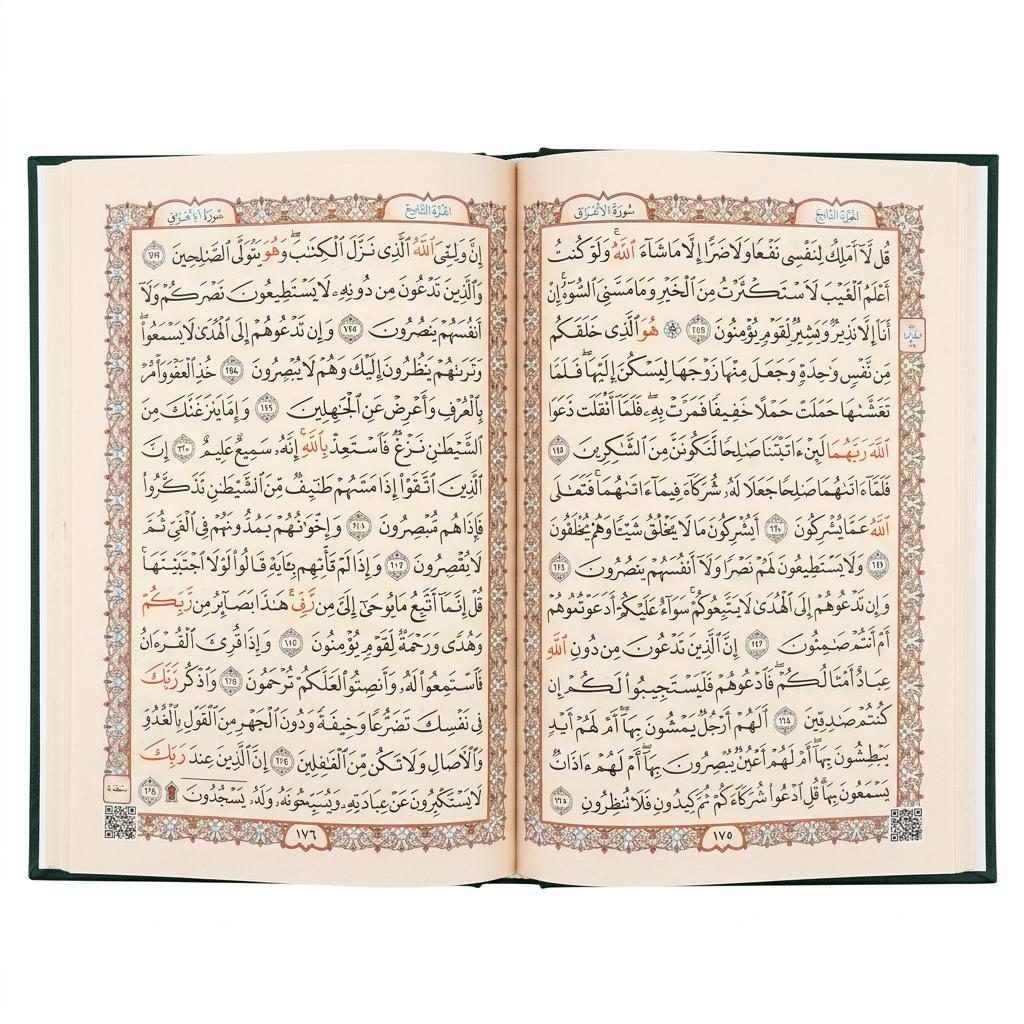 الجزء التاسع
قُل لَّآ أَمْلِكُ لِنَفْسِى نَفْعًا وَلَا ضَرًّا إِلَّا مَا شَآءَ ٱللَّهُ وَلَوْ كُنتُ
أَعْلَمُ ٱلْغَيْبَ لَٱسْتَكْثَرْتُ مِنَ ٱلْخَيْرِ وَمَا مَسَّنِىَ ٱلسُّوٓءُ إِنْ
أَنَا إِلَّا نَذِيرٌ وَبَشِيرٌ لِّقَوْمٍ يُؤْمِنُونَ هُوَ ٱلَّذِى خَلَقَكُم
مِّن نَّفْسٍ وَٰحِدَةٍ وَجَعَلَ مِنْهَا زَوْجَهَا لِيَسْكُنَ إِلَيْهَا فَلَمَّا
تَغَشَّىٰهَا حَمَلَتْ حَمْلًا خَفِيفًا فَمَرَّتْ بِهِۦ فَلَمَّآ أَثْقَلَت دَّعَوَا
ٱللَّهَ رَبَّهُمَا لَئِنْ ءَاتَيْتَنَا صَٰلِحًا لَّنَكُونَنَّ مِنَ ٱلشَّٰكِرِينَ
فَلَمَّآ ءَاتَىٰهُمَا صَٰلِحًا جَعَلَا لَهُۥ شُرَكَآءَ فِيمَآ ءَاتَىٰهُمَا فَتَعَٰلَى
ٱللَّهُ عَمَّا يُشْرِكُونَ أَيُشْرِكُونَ مَا لَا يَخْلُقُ شَيْـًٔا وَهُمْ يُخْلَقُونَ
وَلَا يَسْتَطِيعُونَ لَهُمْ نَصْرًا وَلَآ أَنفُسَهُمْ يَنصُرُونَ
وَإِن تَدْعُوهُمْ إِلَى ٱلْهُدَىٰ لَا يَتَّبِعُوكُمْ سَوَآءٌ عَلَيْكُمْ أَدَعَوْتُمُوهُمْ
أَمْ أَنتُمْ صَٰمِتُونَ إِنَّ ٱلَّذِينَ تَدْعُونَ مِن دُونِ ٱللَّهِ
عِبَادٌ أَمْثَالُكُمْ فَٱدْعُوهُمْ فَلْيَسْتَجِيبُوا۟ لَكُمْ إِن
كُنتُمْ صَٰدِقِينَ أَلَهُمْ أَرْجُلٌ يَمْشُونَ بِهَآ أَمْ لَهُمْ أَيْدٍ
يَبْطِشُونَ بِهَآ أَمْ لَهُمْ أَعْيُنٌ يُبْصِرُونَ بِهَآ أَمْ لَهُمْ ءَاذَانٌ
يَسْمَعُونَ بِهَا قُلِ ٱدْعُوا۟ شُرَكَآءَكُمْ ثُمَّ كِيدُونِ فَلَا تُنظِرُونِ
١٧٥
إِنَّ وَلِـِّۧىَ ٱللَّهُ ٱلَّذِى نَزَّلَ ٱلْكِتَٰبَ وَهُوَ يَتَوَلَّى ٱلصَّٰلِحِينَ
وَٱلَّذِينَ تَدْعُونَ مِن دُونِهِۦ لَا يَسْتَطِيعُونَ نَصْرَكُمْ وَلَآ
أَنفُسَهُمْ يَنصُرُونَ وَإِن تَدْعُوهُمْ إِلَى ٱلْهُدَىٰ لَا يَسْمَعُوا۟
وَتَرَىٰهُمْ يَنظُرُونَ إِلَيْكَ وَهُمْ لَا يُبْصِرُونَ خُذِ ٱلْعَفْوَ وَأْمُرْ
بِٱلْعُرْفِ وَأَعْرِضْ عَنِ ٱلْجَٰهِلِينَ وَإِمَّا يَنزَغَنَّكَ مِنَ
ٱلشَّيْطَٰنِ نَزْغٌ فَٱسْتَعِذْ بِٱللَّهِ إِنَّهُۥ سَمِيعٌ عَلِيمٌ إِنَّ
ٱلَّذِينَ ٱتَّقَوْا۟ إِذَا مَسَّهُمْ طَٰٓئِفٌ مِّنَ ٱلشَّيْطَٰنِ تَذَكَّرُوا۟
فَإِذَا هُم مُّبْصِرُونَ وَإِخْوَٰنُهُمْ يَمُدُّونَهُمْ فِى ٱلْغَىِّ ثُمَّ
لَا يُقْصِرُونَ وَإِذَا لَمْ تَأْتِهِم بِـَٔايَةٍ قَالُوا۟ لَوْلَا ٱجْتَبَيْتَهَا
قُلْ إِنَّمَآ أَتَّبِعُ مَا يُوحَىٰٓ إِلَىَّ مِن رَّبِّى هَٰذَا بَصَآئِرُ مِن رَّبِّكُمْ
وَهُدًى وَرَحْمَةٌ لِّقَوْمٍ يُؤْمِنُونَ وَإِذَا قُرِئَ ٱلْقُرْءَانُ
فَٱسْتَمِعُوا۟ لَهُۥ وَأَنصِتُوا۟ لَعَلَّكُمْ تُرْحَمُونَ وَٱذْكُر رَّبَّكَ
فِى نَفْسِكَ تَضَرُّعًا وَخِيفَةً وَدُونَ ٱلْجَهْرِ مِنَ ٱلْقَوْلِ بِٱلْغُدُوِّ
وَٱلْءَاصَالِ وَلَا تَكُن مِّنَ ٱلْغَٰفِلِينَ إِنَّ ٱلَّذِينَ عِندَ رَبِّكَ
لَا يَسْتَكْبِرُونَ عَنْ عِبَادَتِهِۦ وَيُسَبِّحُونَهُۥ وَلَهُۥ يَسْجُدُونَ
١٧٦